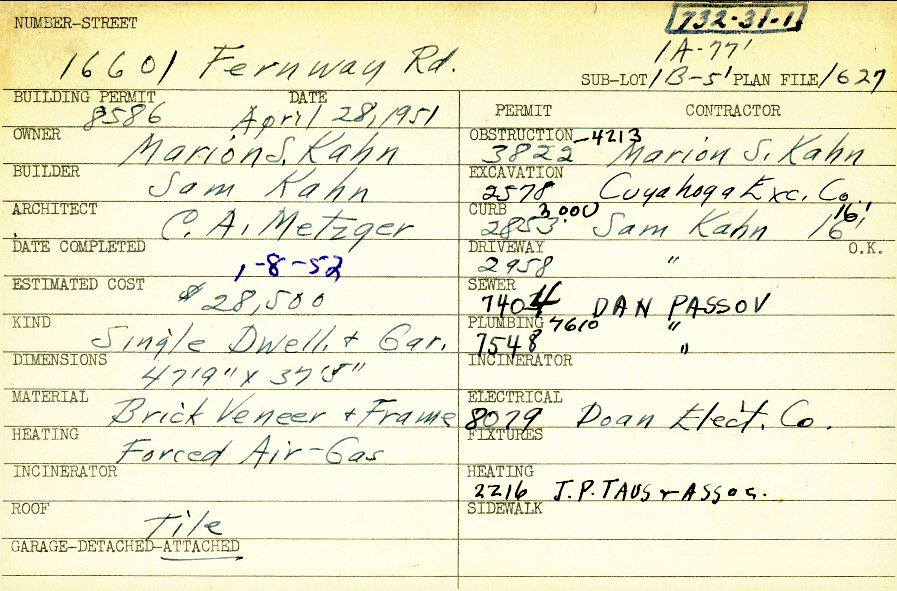 NUMBER-STREET 732-31-1
16601 Fernway Rd. 1A-77'
SUB-LOT 1B-5' PLAN FILE 1627
BUILDING PERMIT DATE
8586 April 28, 1951
OWNER
Marion S. Kahn
BUILDER
Sam Kahn
ARCHITECT
C. A. Metzger
DATE COMPLETED
1-8-52
ESTIMATED COST
$28,500
KIND
Single Dwell. + Gar.
DIMENSIONS
47'9" x 37'5"
MATERIAL
Brick Veneer + Frame
HEATING
Forced Air-Gas
INCINERATOR
ROOF
Tile
GARAGE-DETACHED-ATTACHED
PERMIT CONTRACTOR
OBSTRUCTION -4213
3822 Marion S. Kahn
EXCAVATION
2578 Cuyahoga Exc. Co.
CURB 3000 16'
2853 Sam Kahn 16'
DRIVEWAY O.K.
2958 "
SEWER
7404 DAN PASSOV
PLUMBING 7610 "
7548 "
INCINERATOR
ELECTRICAL
8079 Doan Elect. Co.
FIXTURES
HEATING
2216 J.P. TAUS + ASSOC.
SIDEWALK